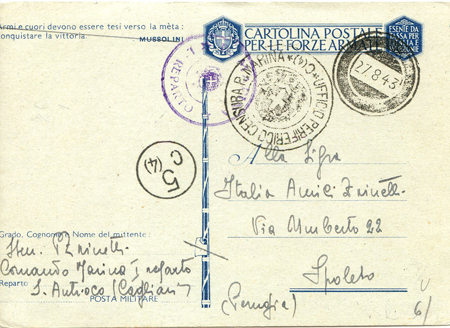 Armi e cuori devono essere tesi verso la mèta:
conquistare la vittoria. MUSSOLINI
CARTOLINA POSTALE
PER LE FORZE ARMATE
ESENTE DA
TASSA PER
REPARTO
UFFICIO PERIFERICO CENSURA R. MARINA
27.8.43
5
C
(4)
Alla Sig.ra
Italia
Via Umberto 22
Spoleto
(Perugia)
Grado, Cognome, Nome del mittente:
Comando Marina I reparto
Reparto S. Antioco (Cagliari)
POSTA MILITARE
6/